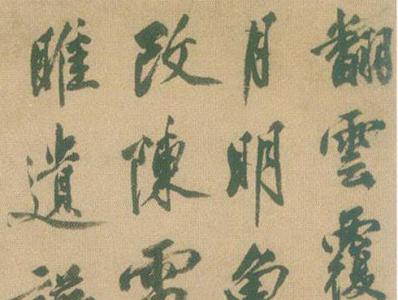 翻雲覆
月明
改陳雷
睢遺